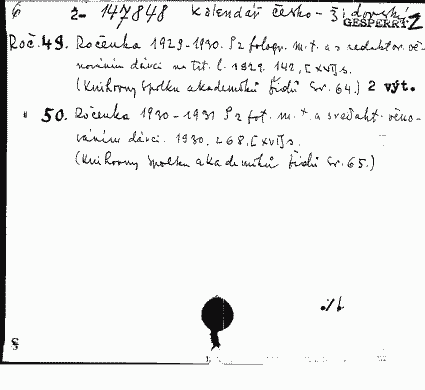 6 2- 147848 Kalendář česko-židovský 2
GESPERRT
Roč. 49. Ročenka 1929-1930. S 2 fotogr. m. t. a s redaktor. vě-
nováním dárci na tit. l. 1929. 142, [XVI] s.
(Knihovny Spolku akademiků židů Sv. 64.) 2 výt.
" 50. Ročenka 1930-1931 S 2 fot. m. t. a s redakt. věno-
váním dárci. 1930. 268, [XVI] s.
(Knihovny Spolku akademiků židů Sv. 65.)